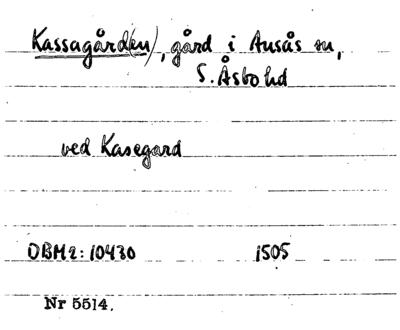 Kassagård(en), gård i Ausås sn,
S. Åsbo hd
ved Kasegard
DBM 2: 10430 1505
Nr 5514.